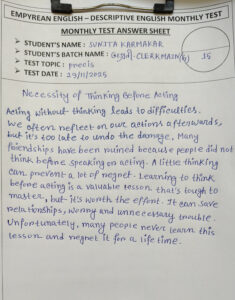 EMPYREAN ENGLISH – DESCRIPTIVE ENGLISH MONTHLY TEST
MONTHLY TEST ANSWER SHEET
➤ STUDENT'S NAME : SUNITA KARMAKAR
➤ STUDENT'S BATCH NAME : CLERKMAIN
➤ TEST TOPIC : precis
➤ TEST DATE :
15
Necessity of Thinking before Acting
Acting without thinking leads to difficulties.
We often reflect on our actions afterwards,
but it's too late to undo the damage, Many
friendships have been ruined because people did not
think before speaking or acting. A little thinking
can prevent a lot of regret. Learning to think
before acting is a valuable lesson that's tough to
master, but it's worth the effort. It can save
relationships, worry and unnecessary trouble.
Unfortunately, many people never learn this
lesson and regret it for a life time.